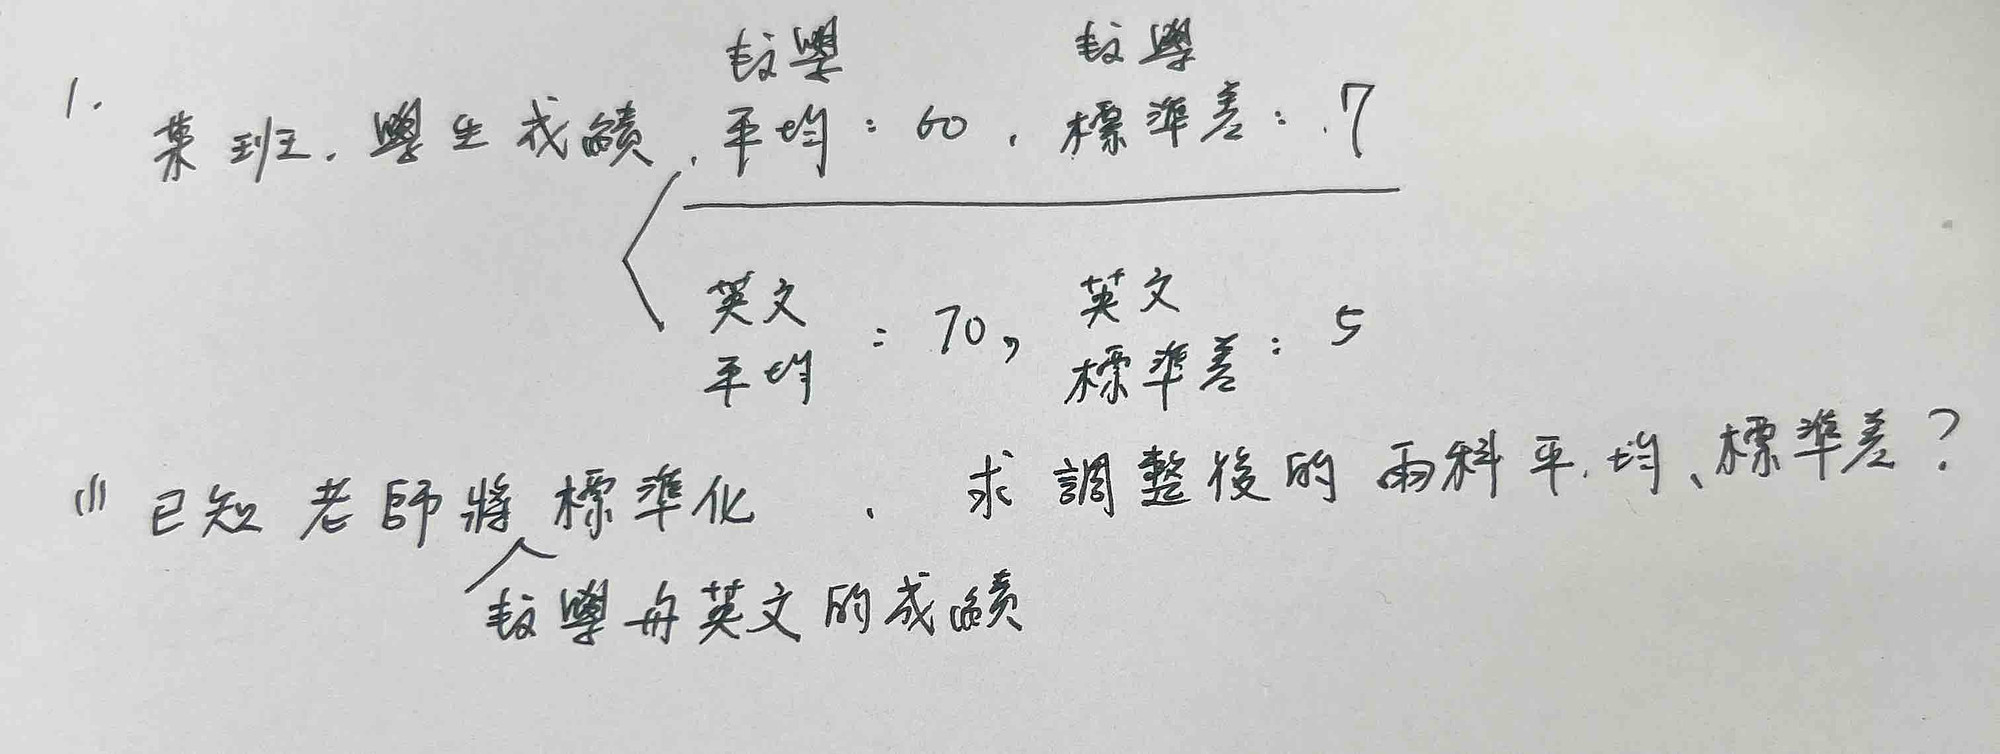 數學 數學
1. 某班.學生成績.平均:60.標準差:7
英文 英文
平均:70,標準差:5
(1)已知老師將標準化.求調整後的兩科平均、標準差?
數學與英文的成績